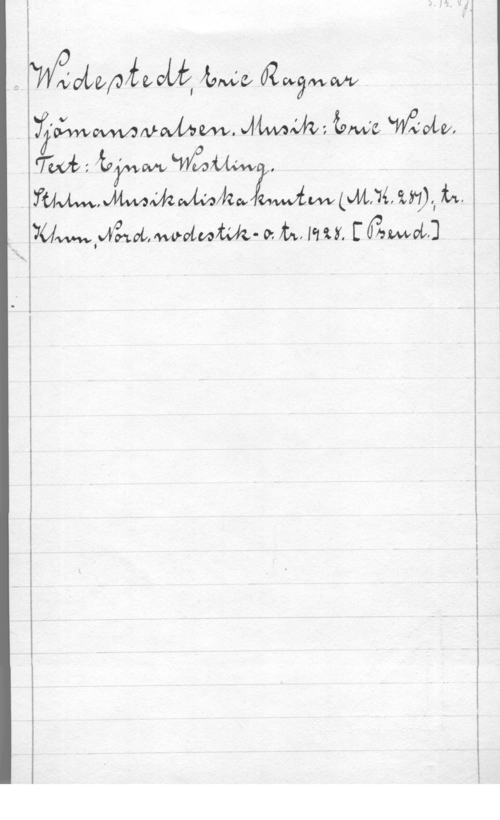 Widestedt, Eric Ragnar
Sjömansvalsen. Musik: Eric Wide.
Text: Ejnar Westling.
Sthlm. Musikaliska knuten (M.K. 287); tr.
Khvn, Nord. nodestik- o. tr. 1928. [Pseud.]